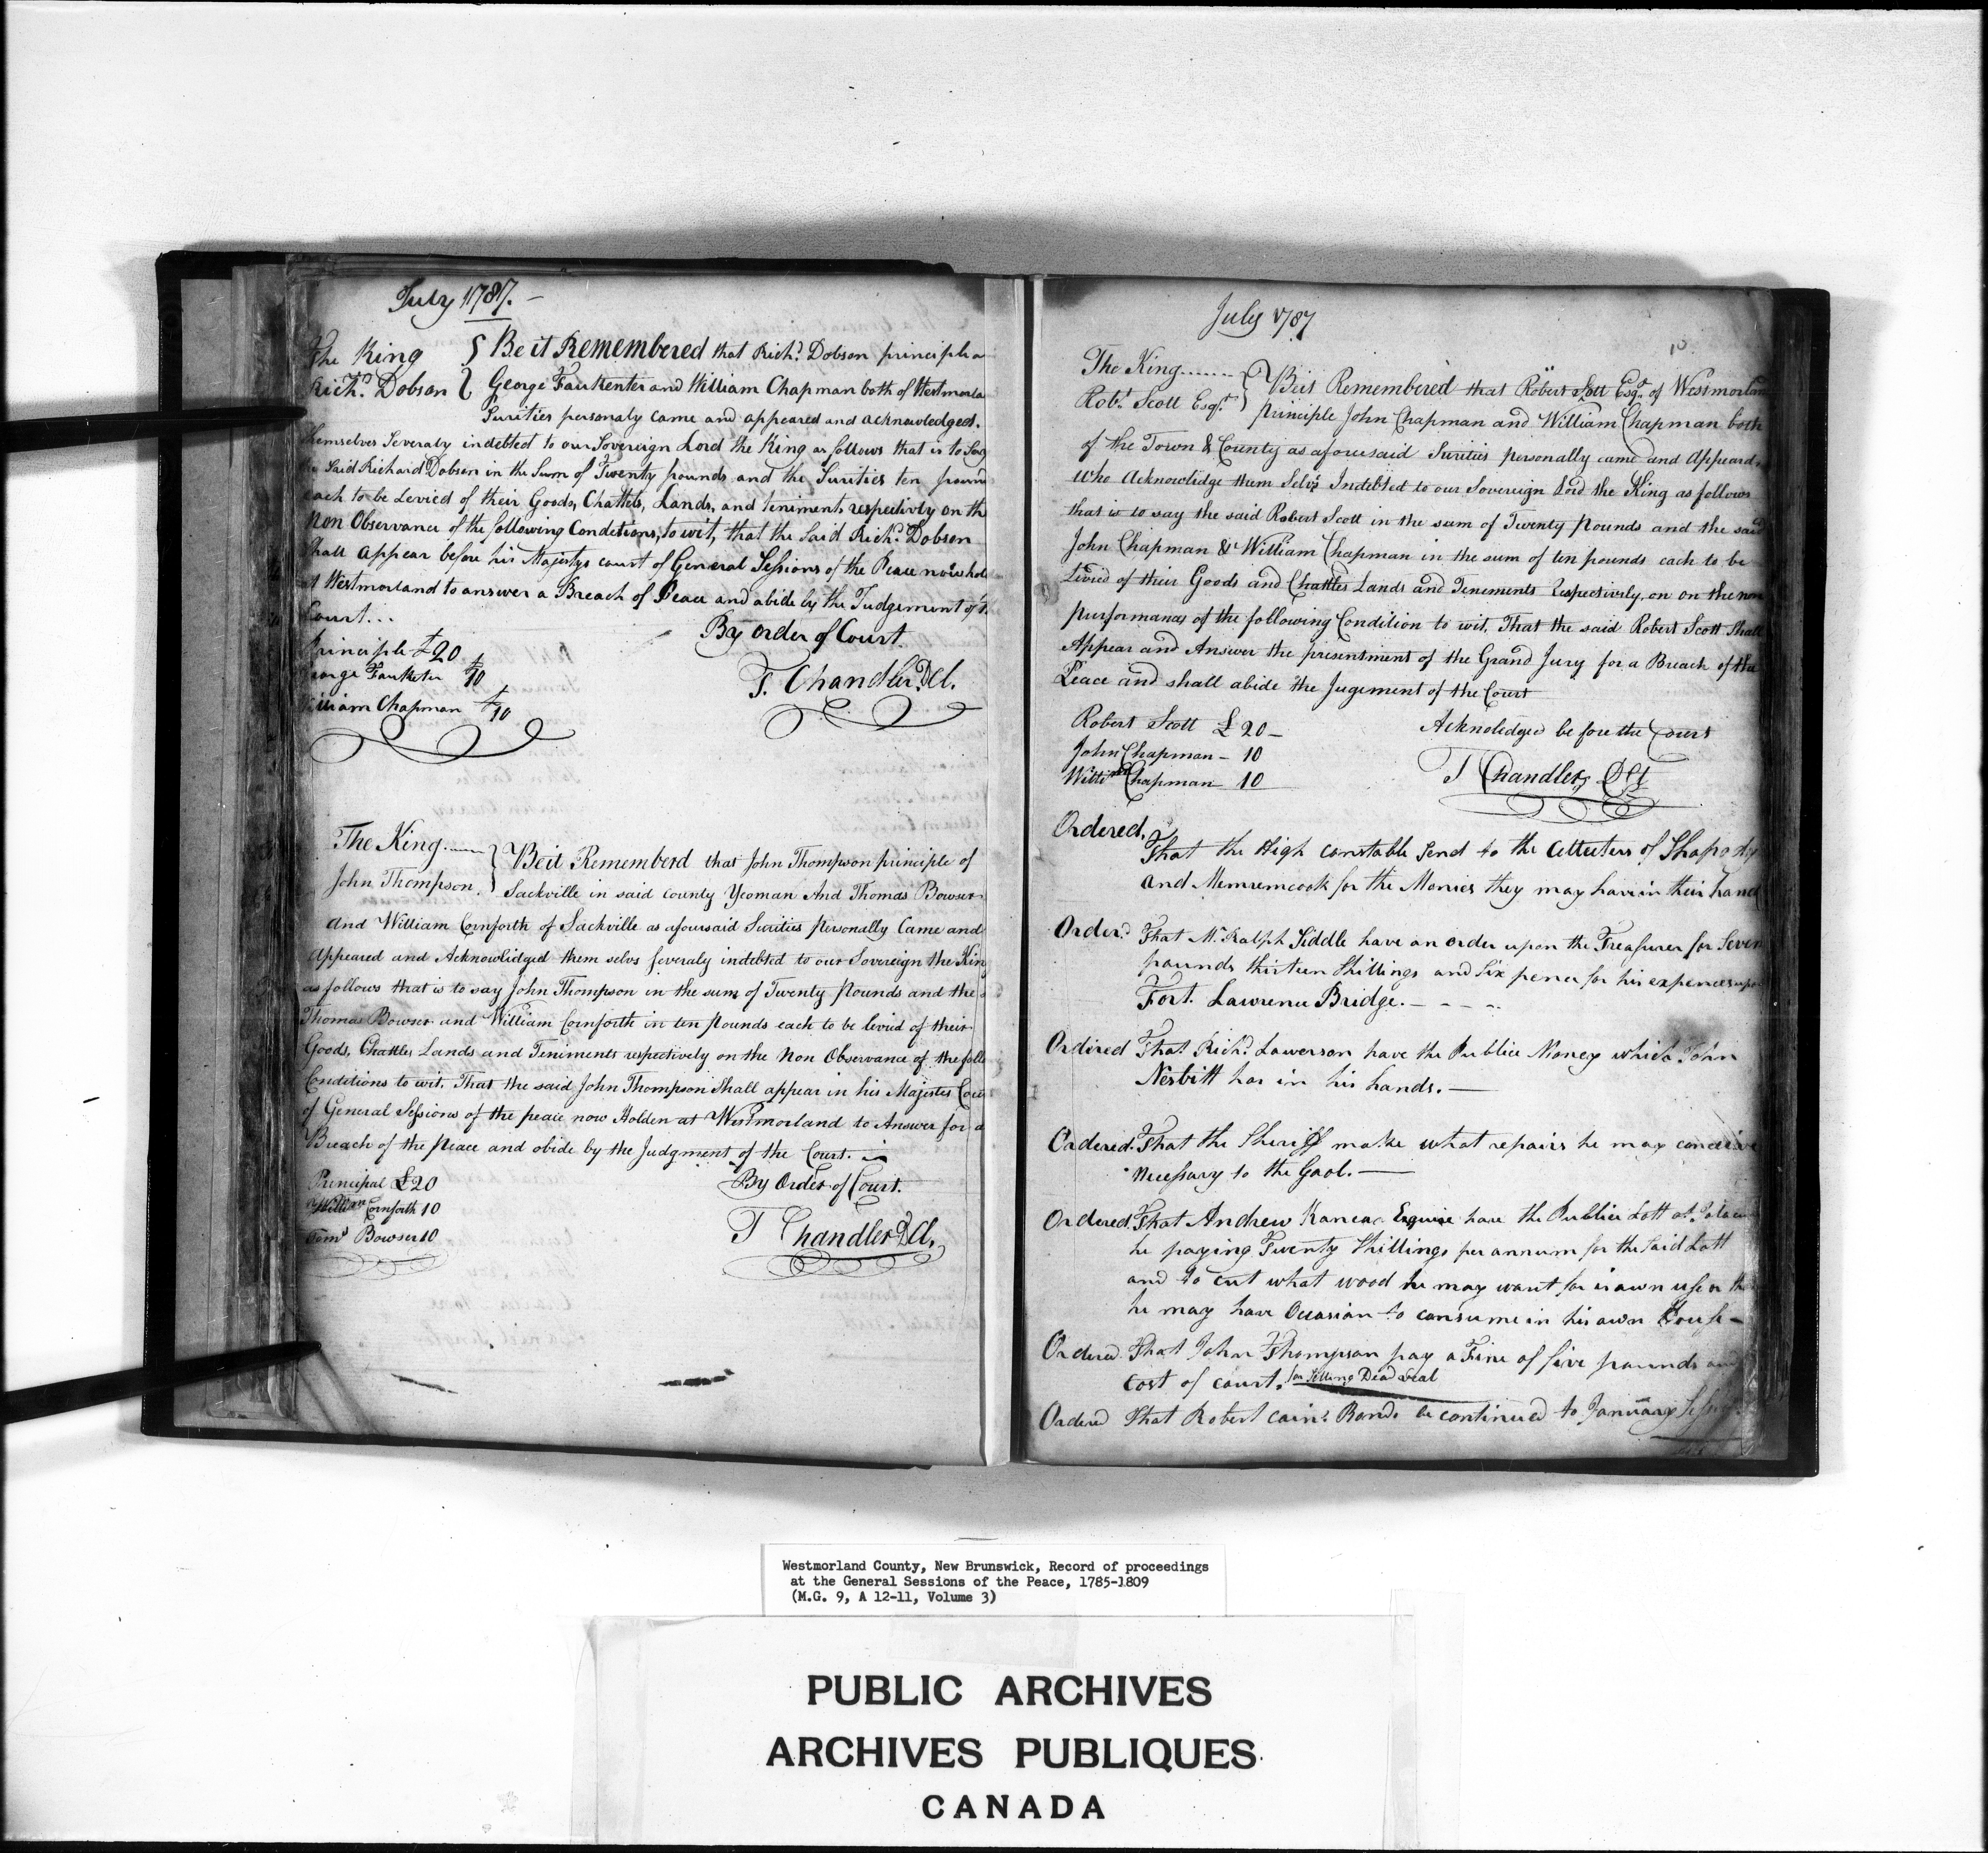 July 1787.
The King } Be it Remembered that Rich.d Dobson principle
Rich.d Dobson } George Faukenter and William Chapman both of Westmorla
Surities personaly came and appeared and acknowledged
themselves Severaly indebted to our Sovereign Lord the King as follows that is to Say
Said Richard Dobson in the Sum of Twenty pounds and the Surities ten pound
each to be Levied of their Goods, Chattels, Lands, and teniments respectively on the
Non Observance of the following Conditions, to wit, that the Said Rich.d Dobson
Shall appear before his Majestys court of General Sessions of the Peace now hold
at Westmorland to answer a Breach of Peace and abide by the Judgement of
Court...
Principle £20
George Faukenter £10
William Chapman £10
By order of Court.
T. Chandler. D Cl.
The King
John Thompson. } Beit Rememberd that John Thompson principle of
Sackville in said county Yeoman And Thomas Bowser
And William Cornforth of Sackville as afoursaid Surities Personally Came and
Appeared and Acknowlidged them selvs severaly indebted to our Sovereign the King
as follows that is to say John Thompson in the sum of Twenty Pounds and the
Thomas Bowser and William Cornforth in ten Pounds each to be levid of their
Goods, Chattles Lands and Teniments respectively on the Non Observance of the folls
Conditions to wit. That the said John Thompson Shall appear in his Majesties Cour
of General Sessions of the peace now Holden at Westmorland to Answer for a
Breach of the Peace and abide by the Judgment of the Court.
Principal £20
William Cornforth 10
Toms Bowser 10
By Order of Court.
T Chandler D Cl.
July 1787
10
The King
Rob.t Scott Esq.r } Beit Remembered that Robert Scott Esq.r of Westmorlan
principle John Chapman and William Chapman both
of the Town & County as aforesaid Surities personally came and Appeard
Who Acknowlidge them Selvs Indebted to our Sovereign Lord the King as follows
that is to say the said Robert Scott in the sum of Twenty Pounds and the said
John Chapman & William Chapman in the sum of ten pounds each to be
Levied of their Goods and Chattles Lands and Tenements Respectively, on on the non
purformances of the following Condition to wit. That the said Robert Scott Shall
Appear and Answer the presentment of the Grand Jury for a Breach of the
Peace and shall abide the Jugement of the Court
Robert Scott £ 20 -
John Chapman - 10
Willi.m Chapman - 10
Acknolidged before the Court
T Chandler, D Cl
Ordered,
That the High constable Send to the Colluters of Shapody
and Memremcook for the Monies they may have in their hand
Order.d That M.r Ralph Siddle have an order upon the Treasurer for Seven
pounds thirteen Shillings and Six pence for his expences upo
Fort. Lawrence Bridge. - - - -
Ordired That Rich.d Lawerson have the Publice Money which John
Nesbitt has in his hands. -
Ordered. That the Sheriff make what repairs he may conceive
necessary to the Gaol. -
Ordered. That Andrew Kanear Esquire have the Publice Lott at
he paying Twenty Shillings per annum for the Said Lott
and to cut what wood he may want for is own use or
he may have Occasian to consume in his own House -
Ordered That John Thompson pay a Fine of five pounds an
cost of court. for Selling Dead Seal
Ordered That Robert Cain's Bonds be continued to January Sessi
Westmorland County, New Brunswick, Record of proceedings
at the General Sessions of the Peace, 1785-1809
(M.G. 9, A 12-11, Volume 3)
PUBLIC ARCHIVES
ARCHIVES PUBLIQUES
CANADA